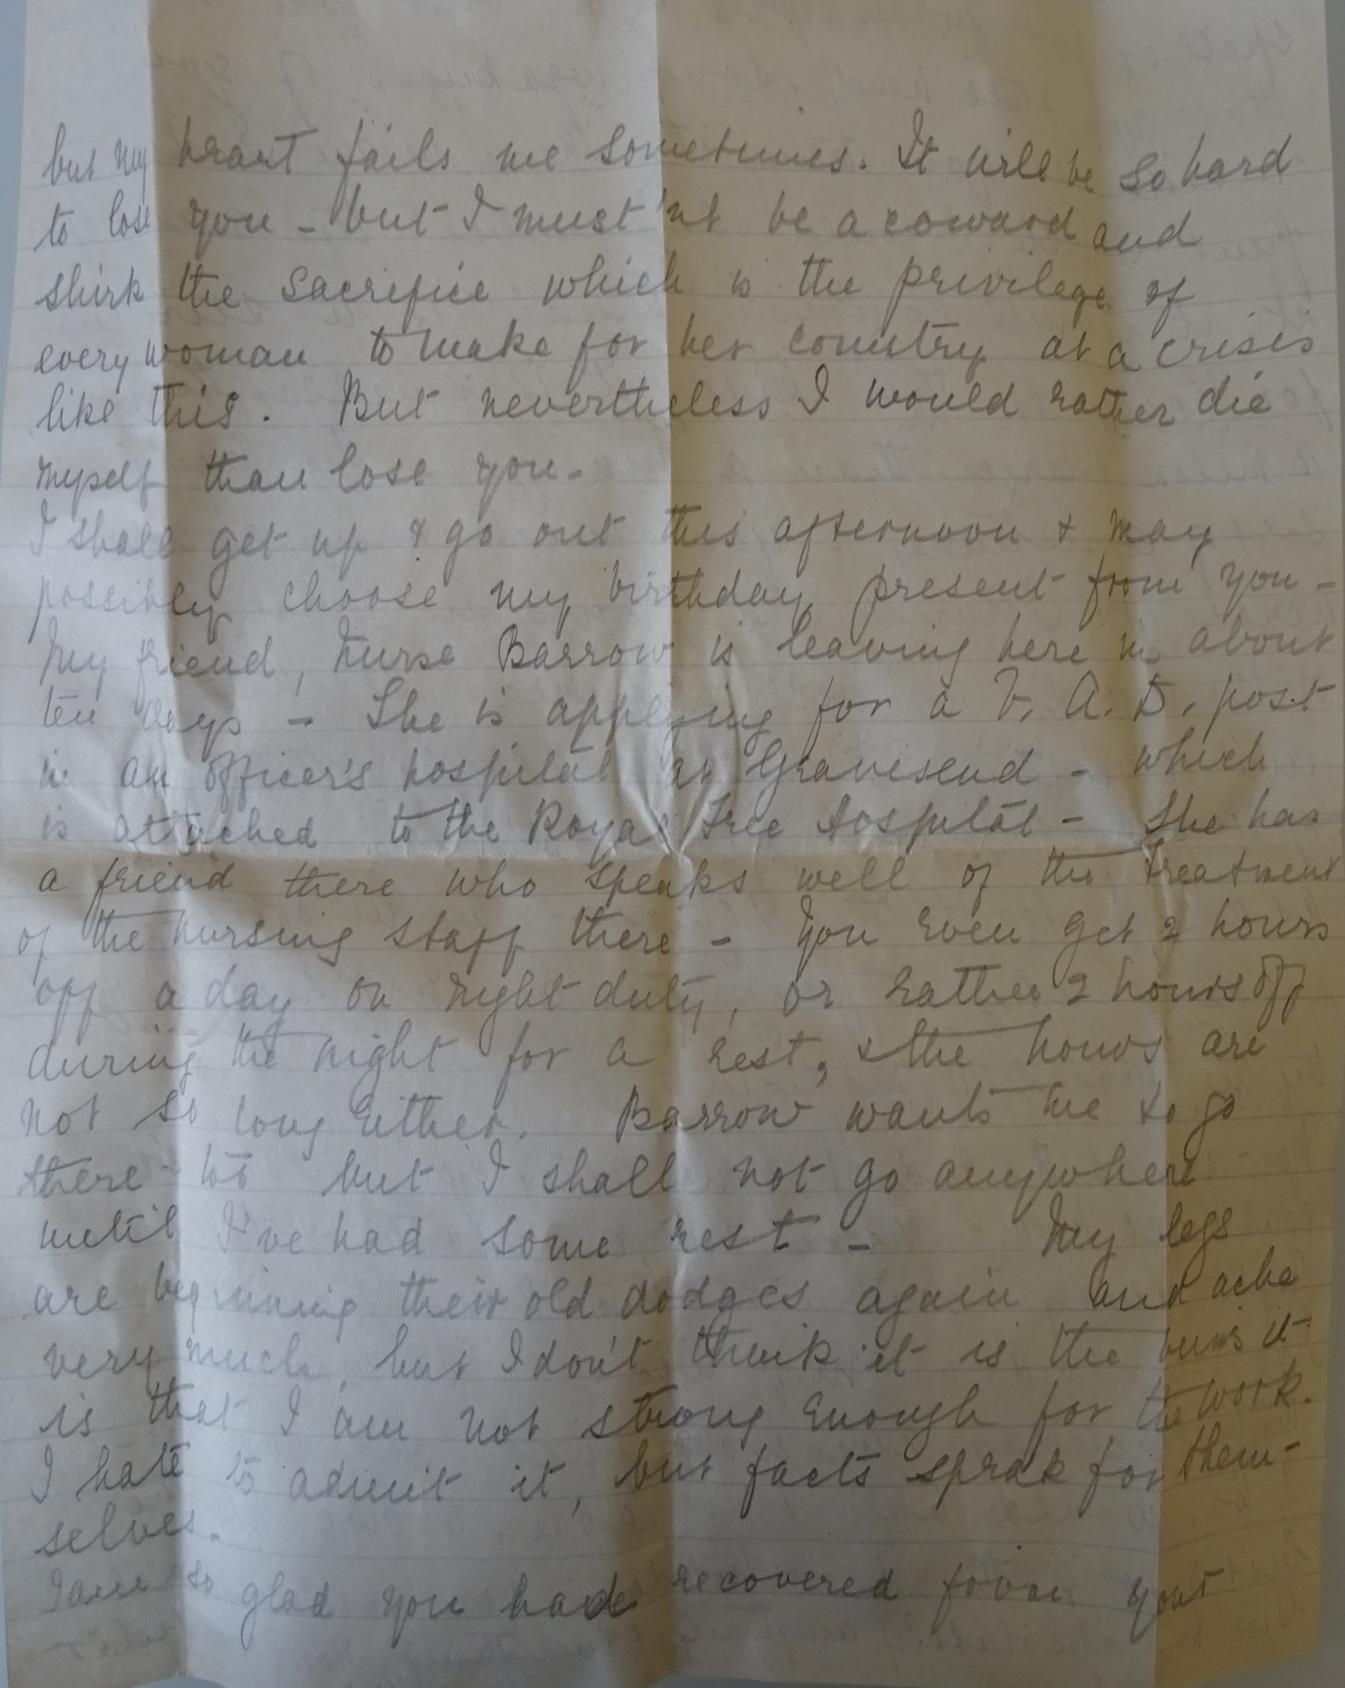 but my heart fails me sometimes. It will be so hard
to lose you - but I must'nt be a coward and
shirk the sacrifice which is the privilege of
every woman to make for her country at a crisis
like this. But nevertheless I would rather die
myself than lose you -
I shall get up & go out this afternoon & may
possibly choose my birthday present from you -
My friend, Nurse Barrow is leaving here in about
ten days - She is applying for a V. A. D. post
in an officer's hospital at Gravesend - which
is attached to the Royal Free Hospital - She has
a friend there who speaks well of the treatment
of the nursing staff there - You even get 2 hours
off a day on night duty, or rather 2 hours off
during the night for a rest, & the hours are
not so long either. Barrow wants me to go
there too but I shall not go anywhere
until I've had some rest - My legs
are beginning their old dodges again and ache
very much, but I don't think it is the it
is that I am not strong enough for the work.
I hate to admit it, but facts speak for them-
selves.
I am so glad you have recovered from your